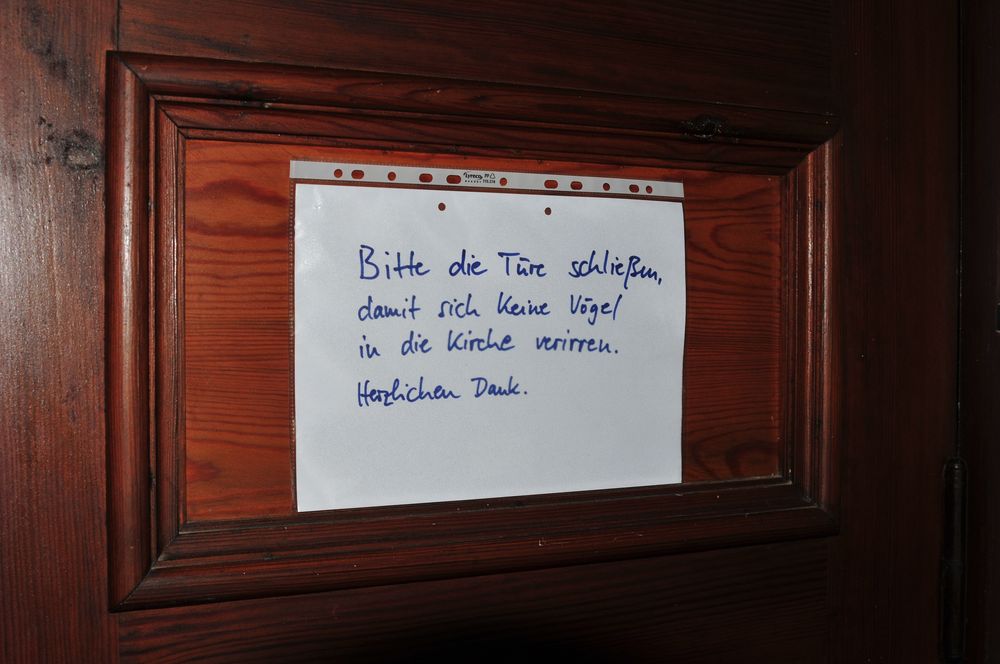 Bitte die Türe schließen,
damit sich keine Vögel
in die Kirche verirren.
Herzlichen Dank.